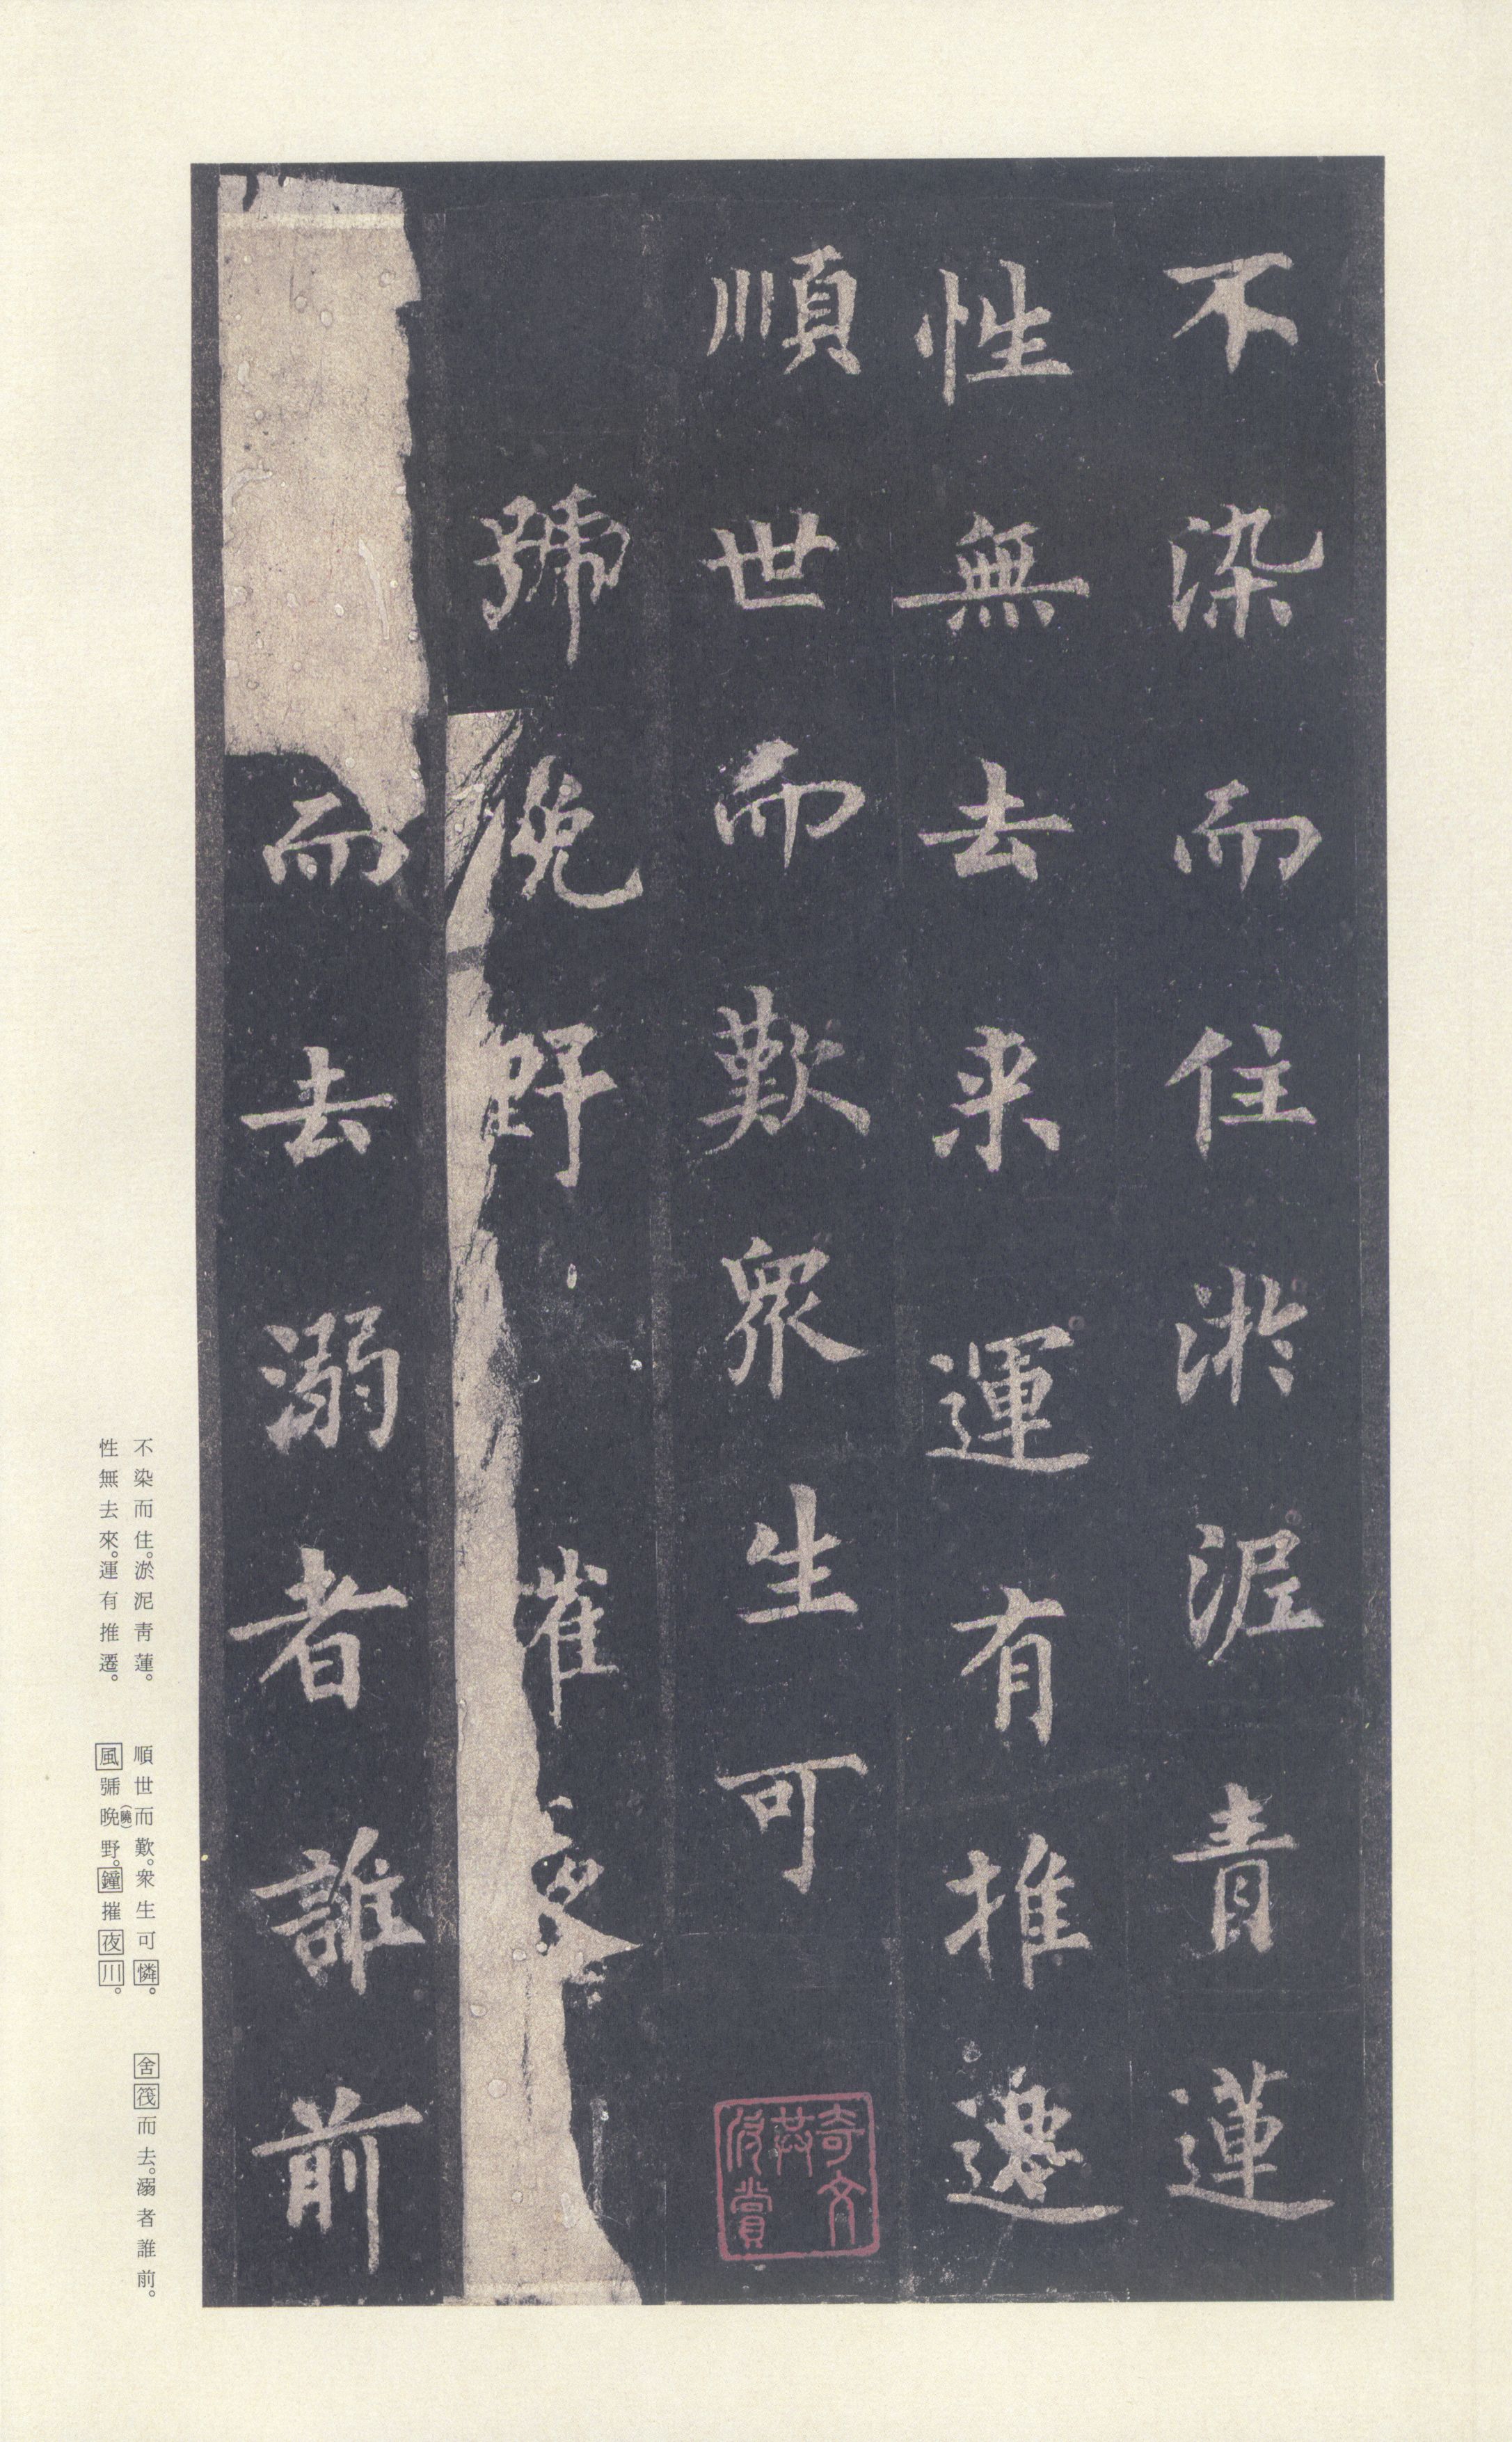 不染而住淤泥青蓮
性無去来運有推遷
順世而歎衆生可
號晚野摧
而去溺者誰前
奇文共欣賞
不染而住。淤泥青蓮。
性無去來。運有推遷。
順世而歎。衆生可憐。
風號晚(曉)野。鐘摧夜川。
舍筏而去。溺者誰前。